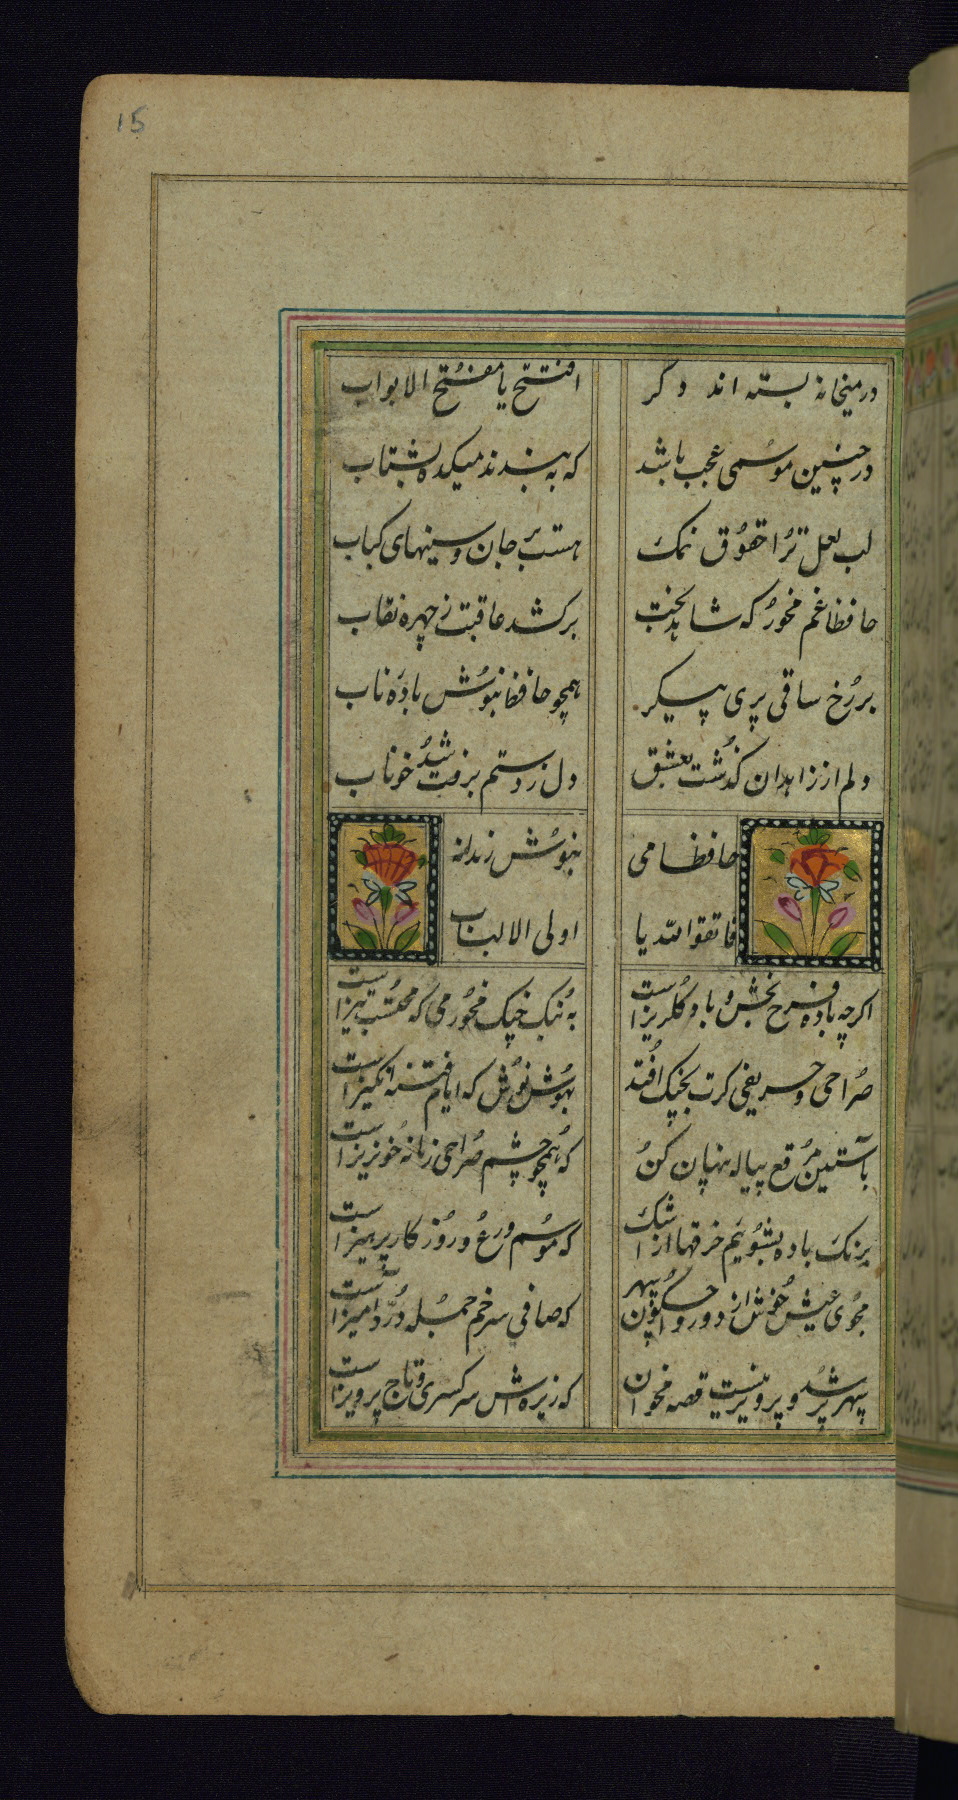 15
در میخانه بسته اند دگر افتتح یا مفتح الابواب
در چنین موسمی عجب باشد که به بندند میکده بشتاب
لب لعل ترا حقوق نمک هست بر جان و سینهای کباب
حافظا غم مخور که شاهد بخت برکشد عاقبت ز چهره نقاب
بر رخ ساقی پری پیکر همچو حافظ بنوش باده ناب
دلم از زاهدان گذشت بعشق دل ز دستم برفت شد خوناب
حافظا می بنوش رندانه
فاتقوا الله یا اولی الالباب
اگرچه باده فرح بخش و باد گلریزاست به بُنک چنک مخور می که محتسب تیزاست
صُراحی و حریفی کرت بچنک اُفتد بهوش نوش که ایام فتنه انکیزاست
بآستین مرقع پیاله پنهان کن که همچو چشم صراحی زمانه خونریزاست
برنک باده بشوئیم خرقها از اشک که موسم ورع و روز کار پرهیزاست
مجوی عیش خوش از دور واژکون سپهر که صافی سر خم جمله دُرد آمیزاست
سپهر بر شد و پرویز نیست قصه مخوان که ریزه اش سر کسری و تاج پرویزاست